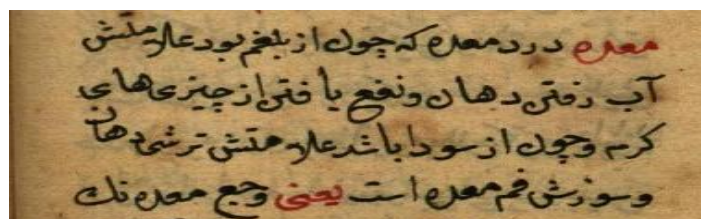 معده درد معده که چون از بلغم بود علامتش
آب رفتن دهان و نفع یافتن از چیزی های
کرم و چون از سودا باشد علامتش ترشی دهان
و سوزش فم معده است یعنی وجع معده